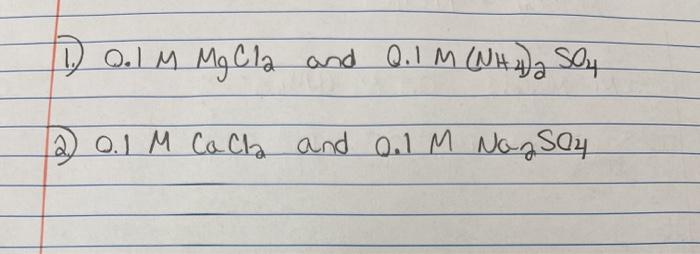 1.) 0.1 M MgCl2 and 0.1 M (NH4)2 SO4
2) 0.1 M CaCl2 and 0.1 M Na2SO4